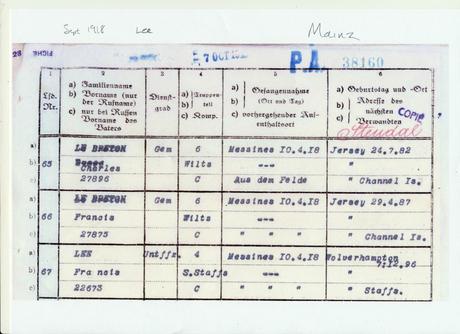 Sept 1918 Lee Mainz
FICHE 7 OCT P.A. 38160
1 2 3 4 5 6
Lfd. Nr.
a) Familienname
b) Vorname (nur der Rufname)
c) nur bei Russen Vorname des Vaters
Dienst-
grad
a) Truppen-
teil
b)
c) Komp.
Gefangennahme
a)
b) (Ort und Tag)
c) vorhergehender Auf-
enthaltsort
a) Geburtstag und -Ort
b) Adresse des
c) nächsten
Verwandten
COPIE
Stendal
a) LE BRETON Gem 6 Messines 10.4.18 Jersey 24.7.82
b) 65 Charles Wilts --- "
c) 27896 C Aus dem Felde " Channel Is.
a) LE BRETON Gem 6 Messines 10.4.18 Jersey 29.4.87
b) 66 Francis Wilts --- "
c) 27875 C " " " " Channel Is.
a) LEE Untffz. 4 Messines 10.4.18 Wolverhampton
7.12.96
b) 67 Francis S.Staffs --- "
c) 22673 C " " " " Staffs.